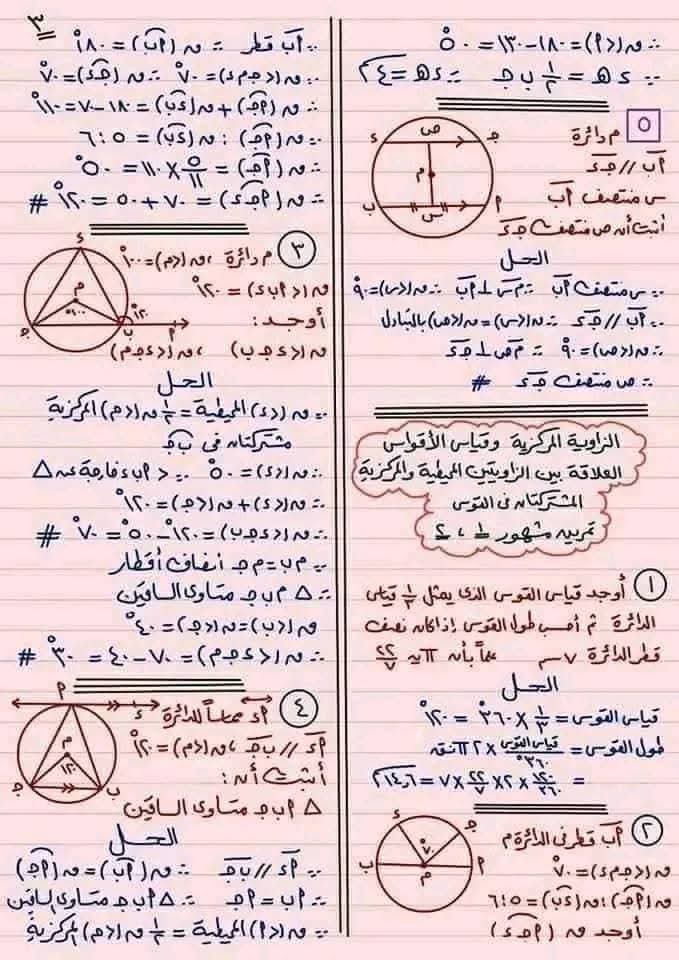 ∴ ق(د P) = ١٨٠ - ١٣٠ = ٥٠°
∵ ء هـ = ١/٢ ب جـ ∴ ء هـ = ٤
٥
م دائرة
P ب // جـ ء
س منتصف P ب
أثبت أن ص منتصف جـ ء
ص
ء جـ
م
ب س P
الحل
∵ س منتصف P ب ∴ م س ⊥ P ب ∴ ق(د س) = ٩٠
∵ P ب // جـ ء ∴ ق(د س) = ق(د ص) بالتبادل
∴ ق(د ص) = ٩٠° ∴ م ص ⊥ جـ ء
∴ ص منتصف جـ ء #
الزاوية المركزية وقياس الأقواس
العلاقة بين الزاويتين المحيطية والمركزية
المشتركتان فى القوس
تمرين مشهور ١، ٢
١ أوجد قياس القوس الذى يمثل ١/٣ قياس
الدائرة ثم أحسب طول القوس إذا كان نصف
قطر الدائرة ٧ سم علماً بأن π = ٢٢/٧
الحل
قياس القوس = ١/٣ × ٣٦٠° = ١٢٠°
طول القوس = قياس القوس/٣٦٠° × ٢ π نق
= ١٢٠/٣٦٠ × ٢ × ٢٢/٧ × ٧ = ١٤,٦
٢ P ب قطر فى الدائرة م
ق(د جـ م ء) = ٧٠°
ق(P جـ) : ق(ء ب) = ٥ : ٦
أوجد ق(P جـ ء)
ء جـ
٧٠°
ب م P
٣
∵ P ب قطر ∴ ق(P ب) = ١٨٠°
∵ ق(د جـ م ء) = ٧٠° ∴ ق(جـ ء) = ٧٠°
∴ ق(P جـ) + ق(ء ب) = ١٨٠ - ٧٠ = ١١٠°
∵ ق(P جـ) : ق(ء ب) = ٥ : ٦
∴ ق(P جـ) = ٥/١١ × ١١٠ = ٥٠°
∴ ق(P جـ ء) = ٧٠ + ٥٠ = ١٢٠° #
٣ م دائرة ، ق(د م) = ١٠٠°
ق(د P ب ء) = ١٢٠°
أوجد :
ق(د ء جـ ب) ، ق(د ء جـ م)
ء
م
١٠٠°
١٢٠°
جـ ب P
الحل
∵ ق(د ء) المحيطية = ١/٢ ق(د م) المركزية
مشتركتان فى ب جـ
∴ ق(د ء) = ٥٠° ∵ د P ب ء خارجة عن △
∴ ق(د ء) + ق(د جـ) = ١٢٠°
∴ ق(د ء جـ ب) = ١٢٠° - ٥٠° = ٧٠° #
∵ م ب = م جـ أنصاف أقطار
∴ △ م ب جـ متساوى الساقين
ق(د ب) = ق(د جـ) = ٤٠°
∴ ق(د ء جـ م) = ٧٠ - ٤٠ = ٣٠° #
٤ P ء مماساً للدائرة
P ء // ب جـ ، ق(د م) = ١٢٠°
أثبت أن :
△ P ب جـ متساوى الساقين
P ء
م
١٢٠
جـ ب
الحل
∵ P ء // ب جـ ∴ ق(P ب) = ق(P جـ)
∴ P ب = P جـ ∴ △ P ب جـ متساوى الساقين
∵ ق(د P) المحيطية = ١/٢ ق(د م) المركزية